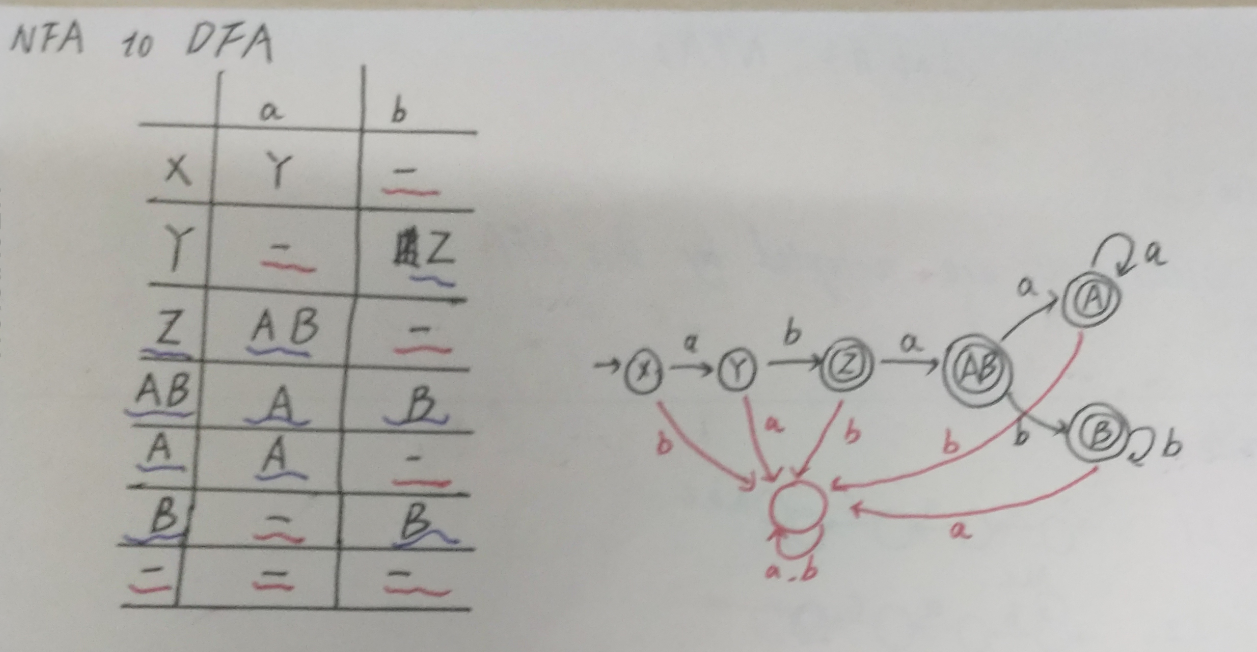 NFA to DFA
a b
X Y -
Y - Z
Z AB -
AB A B
A A -
B - B
- - -
a
a A
X a Y b Z a AB
b B b
b a b b
a
a.b